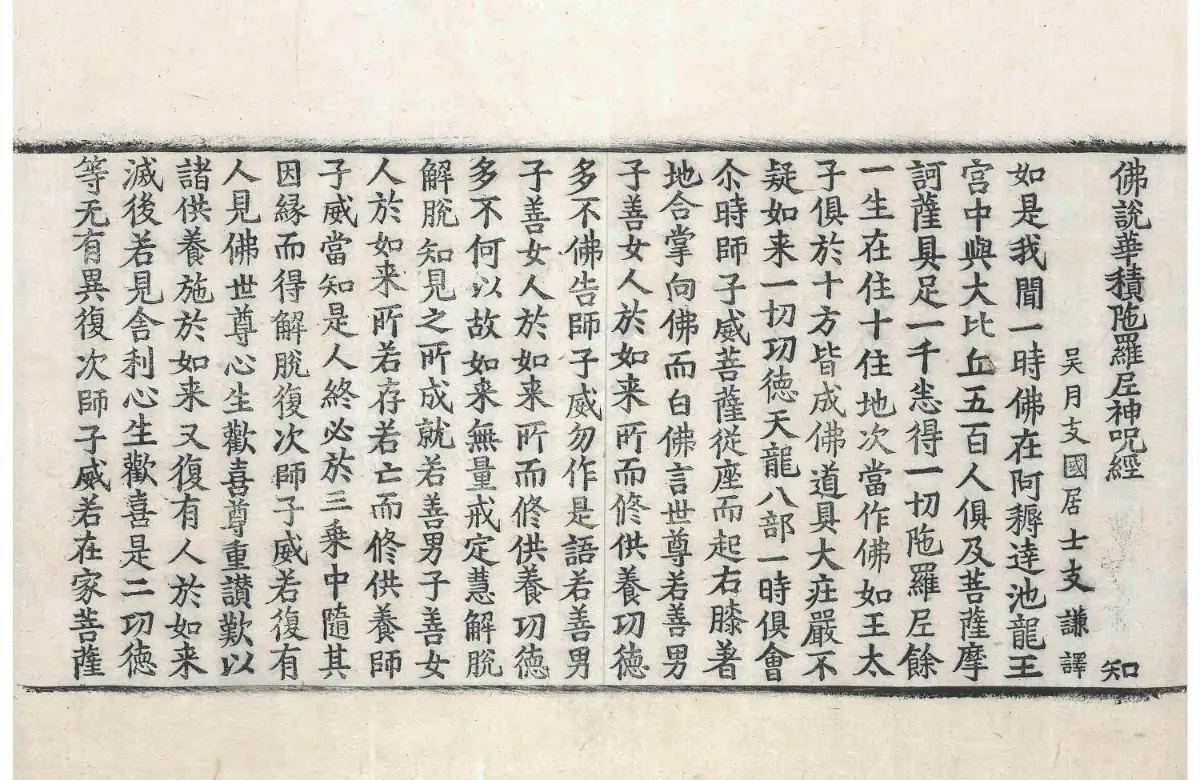 佛說華積陁羅尼神呪經　知
吴月支國居士支謙譯
如是我聞一時佛在阿耨達池龍王
宮中與大比丘五百人俱及菩薩摩
訶薩具足一千悉得一切陁羅尼餘
一生在住十住地次當作佛如王太
子俱於十方皆成佛道具大莊嚴不
疑如来一切功德天龍八部一時俱會
尒時師子威菩薩從座而起右膝著
地合掌向佛而白佛言世尊若善男
子善女人於如来所而修供養功德
多不佛告師子威勿作是語若善男
子善女人於如来所而修供養功德
多不何以故如来無量戒定慧解脫
解脫知見之所成就若善男子善女
人於如来所若存若亡而修供養師
子威當知是人終必於三乗中隨其
因緣而得解脫復次師子威若復有
人見佛世尊心生歡喜尊重讃歎以
諸供養施於如来又復有人於如来
滅後若見舍利心生歡喜是二功德
等无有異復次師子威若在家菩薩